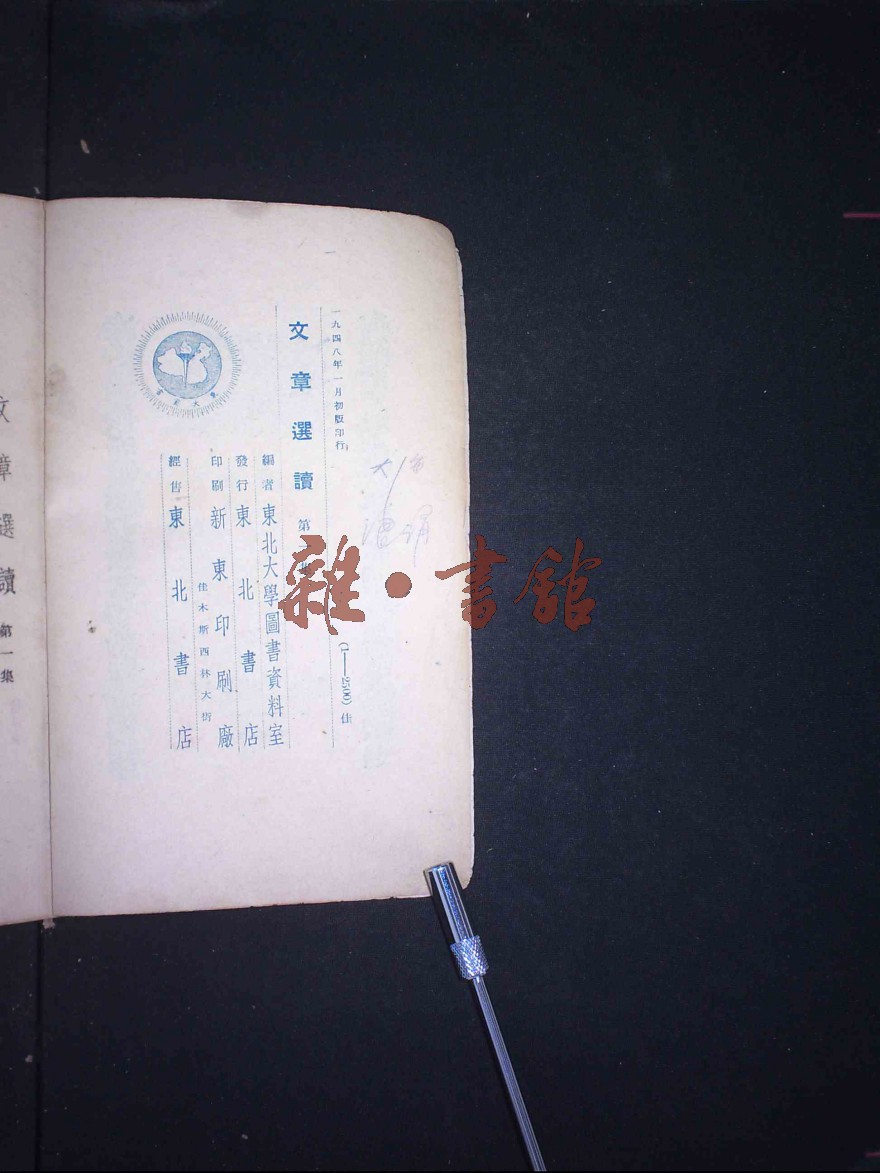 一九四八年一月初版印行
(1—2500) 佳
文章選讀 第
編者 東北大學圖書資料室
發行 東北書店
印刷 新東印刷廠
佳木斯西林大街
經售 東北書店
東北大學
文章選讀 第一集
雜·書館